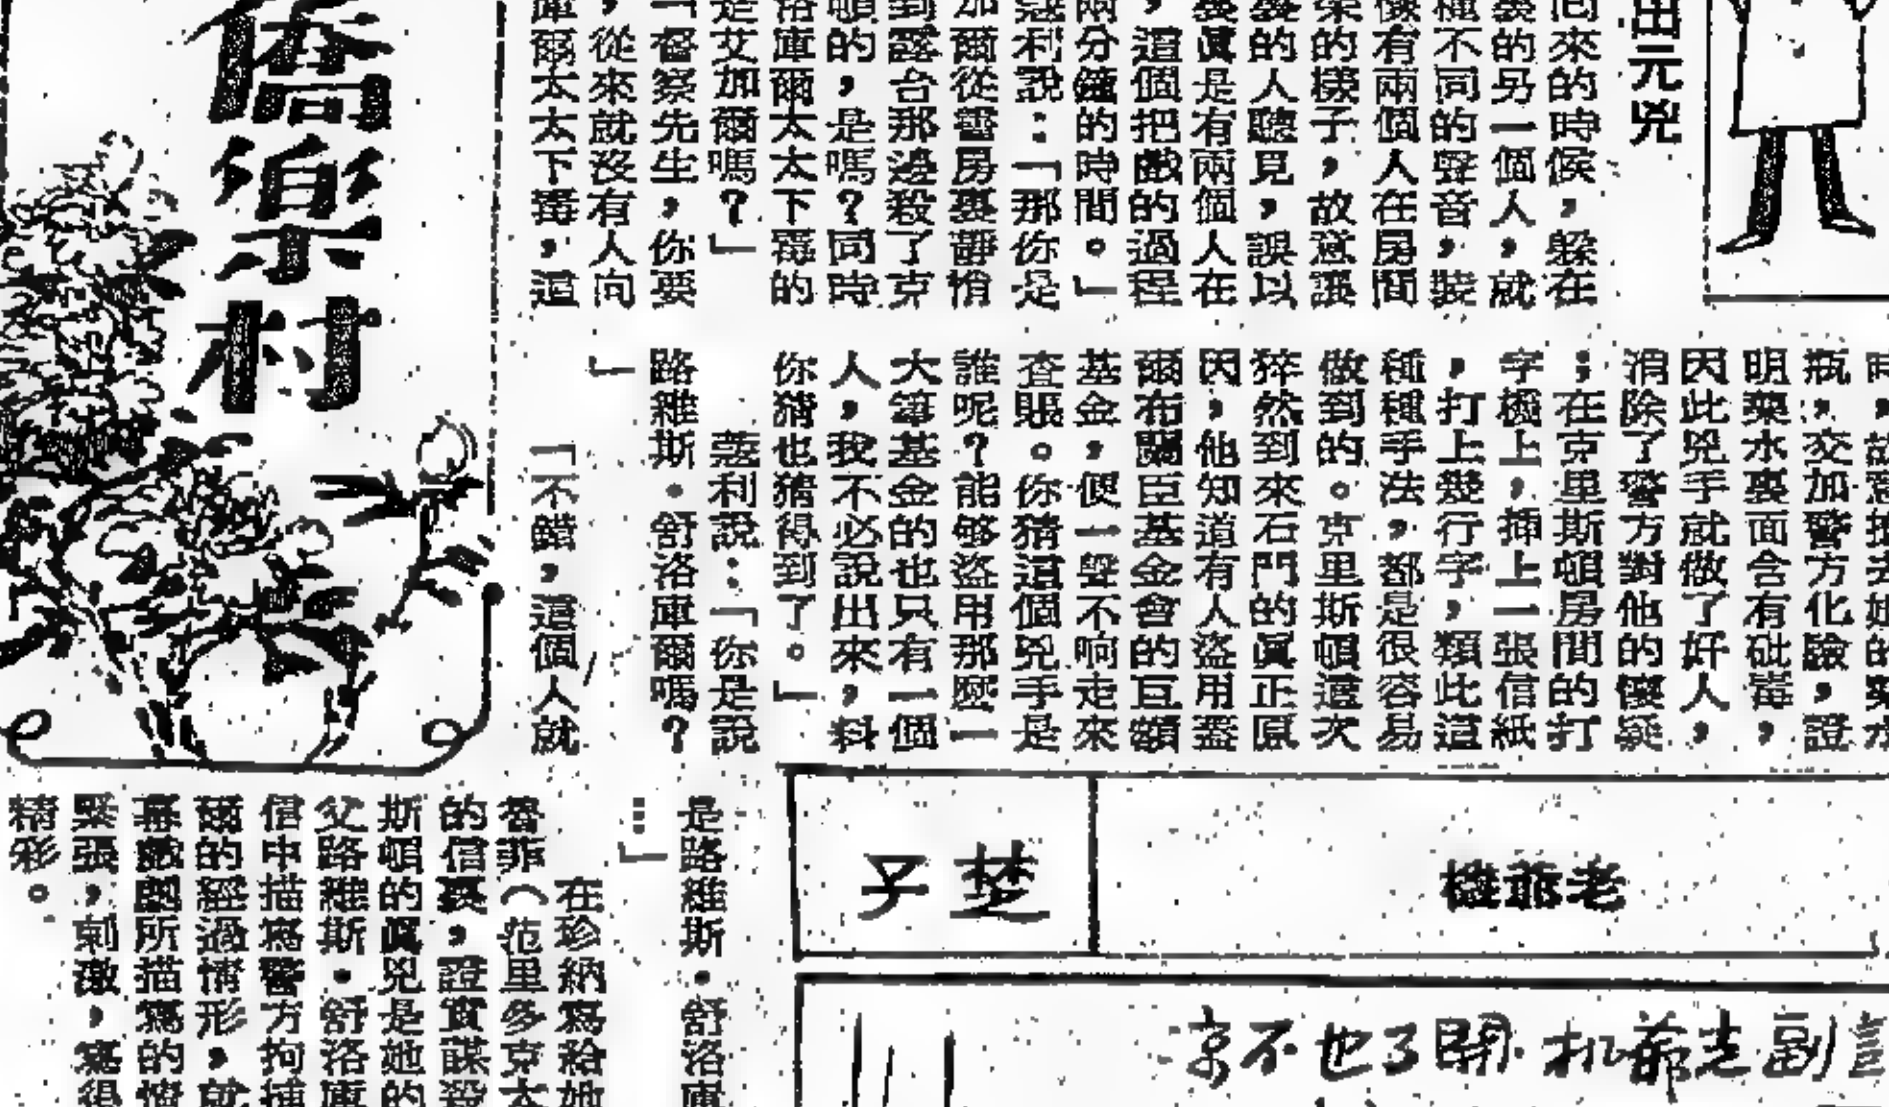 出元兇
來的時候，躲在
裏的另一個人，就
種不同的聲音，裝
像有兩個人在房間
架的樣子，故意讓
裏的人聽見，誤以
眞是有兩個人在
，這個把戲的過程
兩分鐘的時間。」
蔻利說：「那你是
加爾從書房裏靜悄
到露台那邊殺了克
頓的，是嗎？同時
洛庫爾太太下毒的
是艾加爾嗎？」
「督察先生，你要
，從來就沒有人向
庫爾太太下毒，這
僑樂村
瓶，交加警方化驗，證
明藥水裏面含有砒毒，
因此兇手就做了好人，
消除了警方對他的懷疑
；在克里斯頓房間的打
字機上，揷上一張信紙
，打上幾行字，類此這
種種手法，都是很容易
做到的。克里斯頓這次
猝然到來石門的眞正原
因，他知道有人盜用蓋
爾布關臣基金會的巨額
基金，便一聲不响走來
查賬。你猜這個兇手是
誰呢？能够盜用那麼一
大筆基金的也只有一個
人，我不必說出來，料
你猜也猜得到了。」
蔻利說：「你是說
路維斯·舒洛庫爾嗎？
」
「不錯，這個人就
是路維斯·舒洛庫
…」
在珍納寫給她
魯菲（范里多克太
的信裏，證實謀殺
斯頓的眞兇是她的
父路維斯·舒洛庫
信中描寫警方拘捕
爾的經過情形，就
幕戲劇所描寫的情
緊張，刺激，寫得
精彩。
老爺機
芝子
副老爺机開了也不